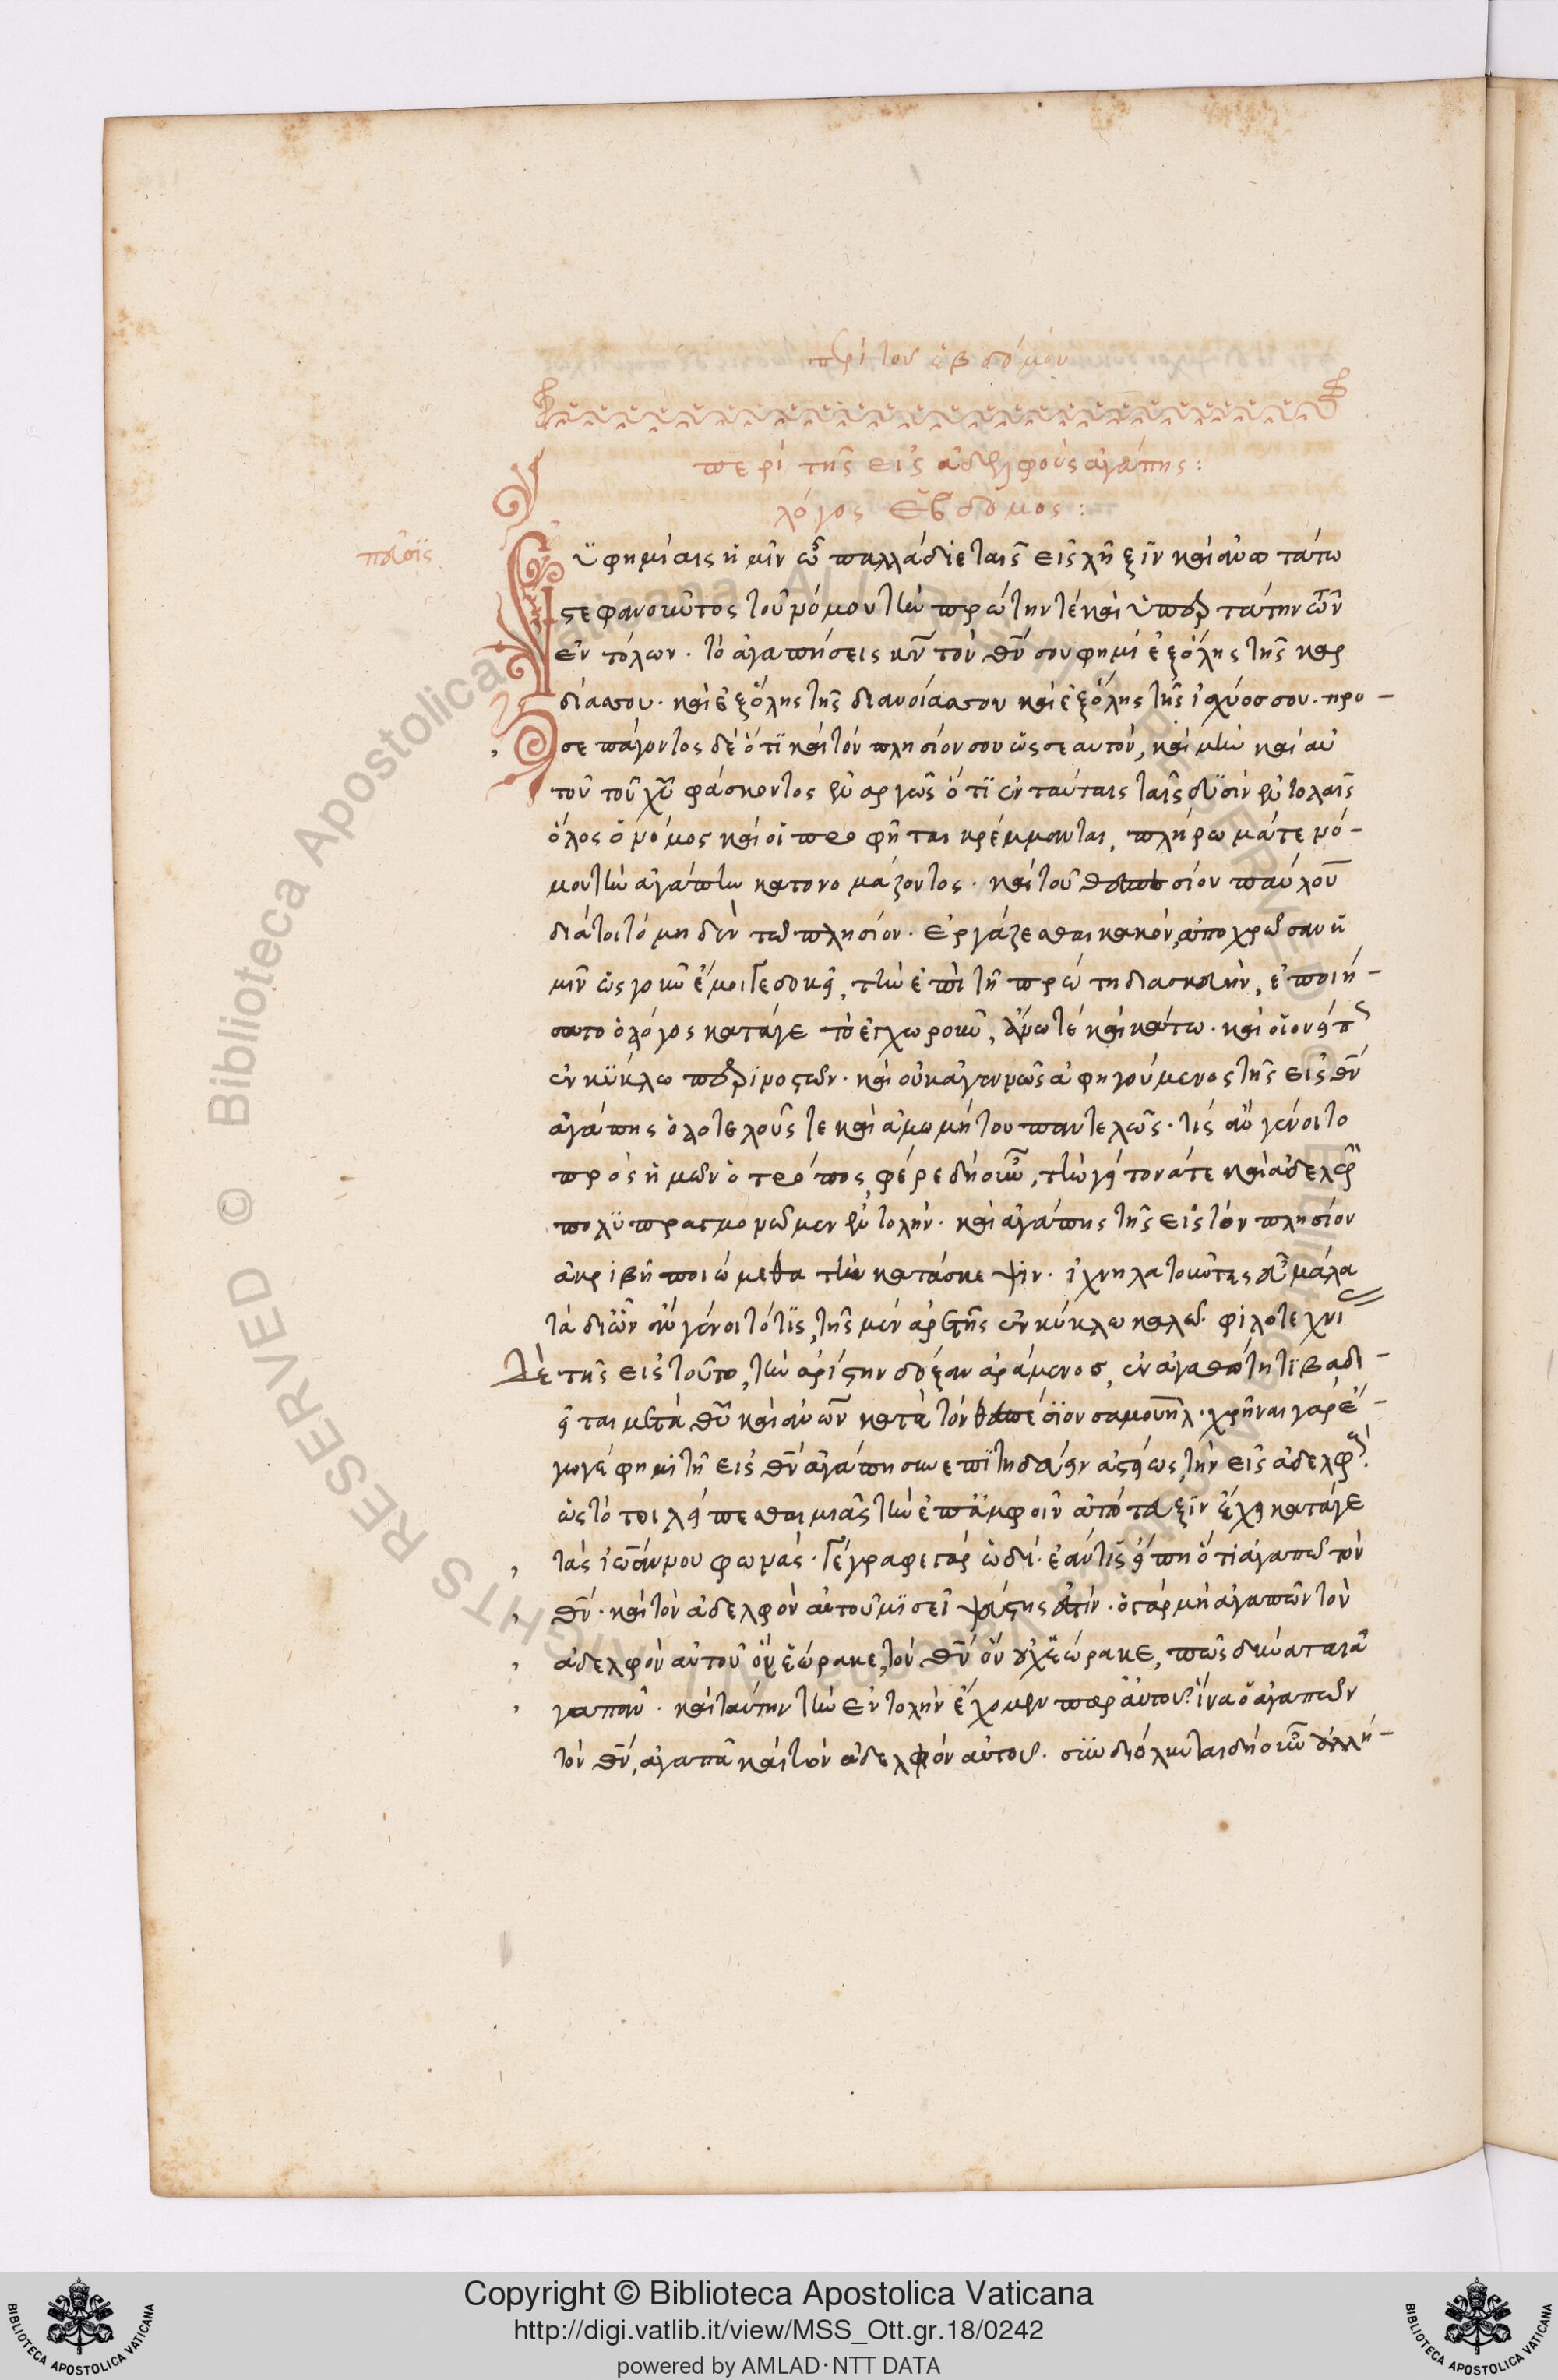 περὶ τοῦ ἑβδόμου
περὶ τῆς εἰς ἀδελφοὺς ἀγάπης:
λόγος ἕβδομος:
Εὐφημίαις ἡμῖν ὦ παλλάδιε ταῖς εἰς λῆξιν καὶ ἀνωτάτω
στεφανοῦντος τοῦ νόμου τὴν πρώτην τὲ καὶ ὑπερτάτην τῶν
ἐντολῶν. τὸ ἀγαπήσεις κν τὸν θν σου φημὶ ἐξ ὅλης τῆς καρ
δίας σου. καὶ ἐξ ὅλης τῆς διανοίας σου καὶ ἐξ ὅλης τῆς ἰσχύος σου. προ-
σεπάγοντος δὲ ὅτι καὶ τὸν πλησίον σου ὡς σεαυτόν, καὶ μὴν καὶ αὐ
τοῦ τοῦ χυ φάσκοντος ἐναργῶς ὅτι ἐν ταύταις ταῖς δυσὶν ἐντολαῖς
ὅλος ὁ νόμος καὶ οἱ προφῆται κρέμμανται, πλήρωμά τε νό-
μου τὴν ἀγάπην κατονομάζοντος. καὶ τοῦ θεσπεσίου παύλου
διάτοι τὸ μηδὲν τῶ πλησίον. ἐργάζεσθαι κακόν, ἀποχρῶσαν ἡ
μῖν ὡς γοῦν ἔμοιγε δοκεῖ, τὴν ἐπὶ τῆ πρώτη διασκεψιν, ἐποιή-
σατο ὁ λόγος κατάγε τὸ ἐγχωροῦν, ἄνω τέ καὶ κάτω. καὶ οἷον εἴπ
ἐν κύκλω περϊνοστῶν. καὶ οὐκ ἀγεννῶς ἀφηγούμενος τῆς εἰς θν
ἀγάπης ὁλοτελοῦς τε καὶ ἀμωμήτου παντελῶς. τίς ἂν γένοιτο
πρὸς ἡμῶν ὁ τρόπος, φέρε δὴ οὖν, τὴν γείτονά τε καὶ ἀδελφ
πολυπραγμονῶμεν ἐντολήν. καὶ ἀγάπης τῆς εἰς τὸν πλησίον
ἀκριβῆ ποιώμεθα τὴν κατάσκεψιν. ἰχνηλατοῦντες εὖ μάλα
τὰ δι' ὧν ἂν γένοιτό τϊς, τῆς μὲν ἀρετῆς ἐν κύκλω καλῶ. φιλοτεχνί
δὲ τῆς εἰς τοῦτο, τὴν ἀρίστην δόξαν ἀράμενος, ἐν ἀγαθότητι βαδι-
εῖται μετὰ θυ καὶ ἀνων κατὰ τὸν θεσπέσϊον σαμουήλ. χρῆναι γὰρ ἔ-
γωγέ φημι τῆ εἰς θν ἀγάπη συνεπϊτηδεύειν ἀστείως, τὴν εἰς ἀδελφ.
ὡς τό τοι λείπεσθαι μιᾶς τὴν ἐπ' ἄμφοιν ἀπόταξϊν ἔχει κατάγε
τὰς ἰωάννου φωνάς. Γέγραφε γὰρ ὡδί. ἐάν τις εἴπη ὅτι ἀγαπῶ τὸν
θν. καὶ τὸν ἀδελφὸν αὐτοῦ μϊσεῖ ψεύστης ἐστίν. ὁ γὰρ μὴ ἀγαπῶν τὸν
ἀδελφὸν αὐτοῦ ὃν ἑώρακε, τὸν θν ὃν οὐχ ἑώρακε, πῶς δύναται ἀ
γαπᾶν. καὶ ταύτην τὴν ἐντολὴν ἔχομεν παρ' αὐτοῦ. ἵνα ὁ ἀγαπῶν
τὸν θν, ἀγαπᾶ καὶ τὸν ἀδελφὸν αὐτοῦ.
Copyright © Biblioteca Apostolica Vaticana
http://digi.vatlib.it/view/MSS_Ott.gr.18/0242
powered by AMLAD·NTT DATA
BIBLIOTECA APOSTOLICA VATICANA
BIBLIOTECA APOSTOLICA VATICANA